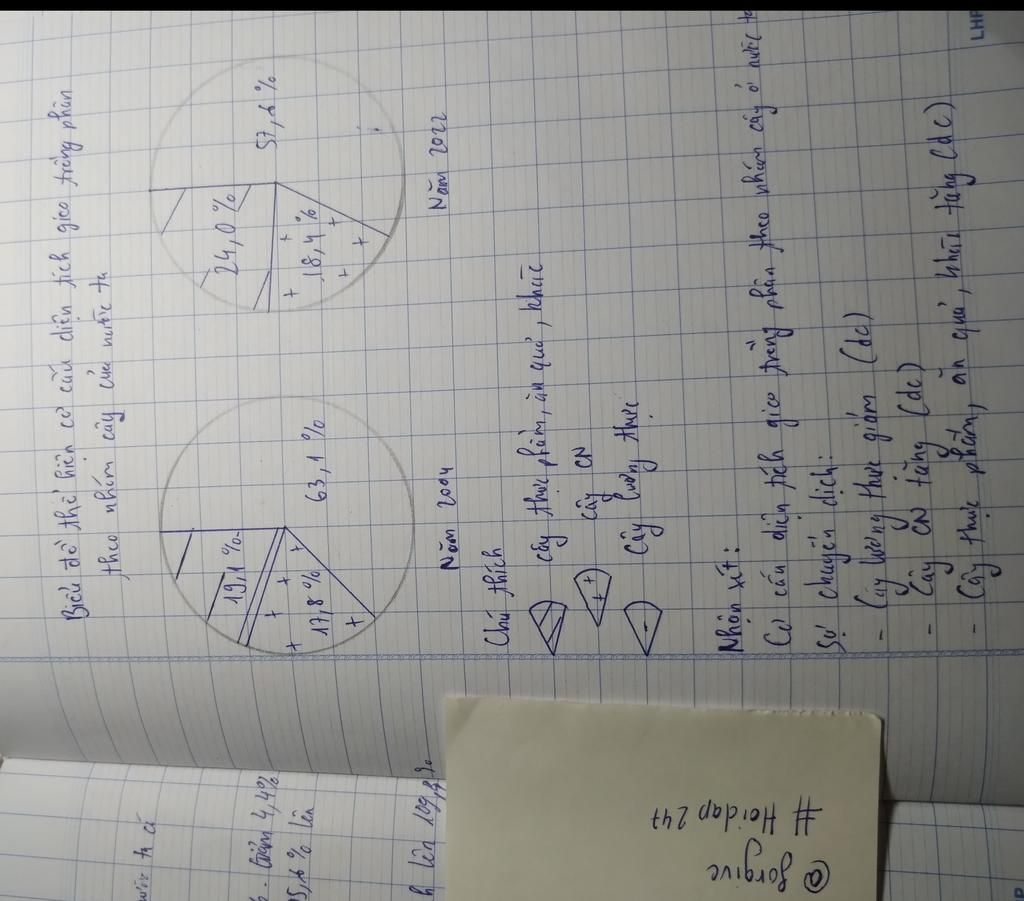 Biểu đồ thể hiện cơ cấu diện tích gieo trồng phân
theo nhóm cây của nước ta
19,1%
63,1%
17,8%
Năm 2004
24,0%
57,6%
18,4%
Năm 2022
Chú thích
cây thực phẩm, ăn quả, khác
cây CN
cây lương thực
Nhận xét:
Cơ cấu diện tích gieo trồng phân theo nhóm cây ở nước ta
Sự chuyển dịch:
- Cây lương thực giảm (dc)
- Cây CN tăng (dc)
- Cây thực phẩm, ăn quả, khác tăng (dc)
giảm 4,4%
lên
h lên
@ forgive
# Hoidap 247
LHP